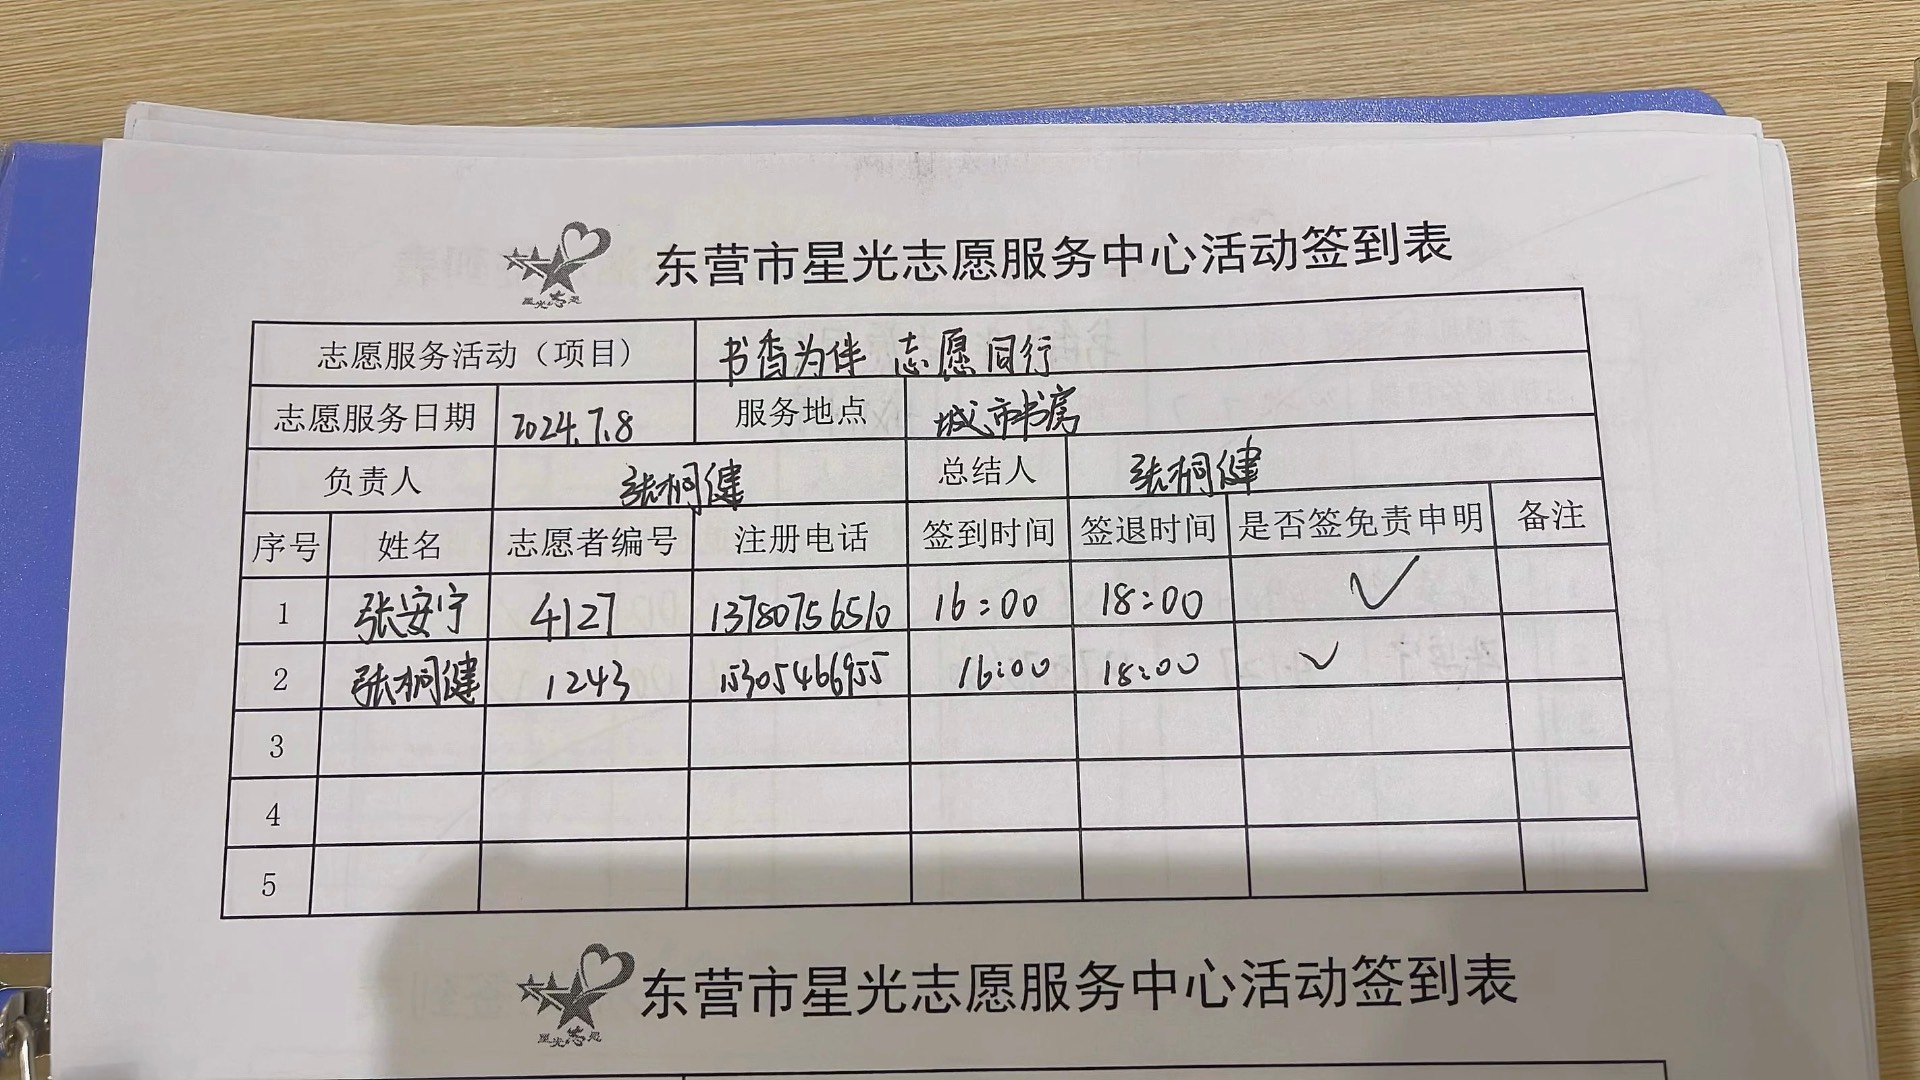 东营市星光志愿服务中心活动签到表
星光志愿
志愿服务活动（项目） 书香为伴 志愿同行
志愿服务日期 2024.7.8 服务地点 城市书房
负责人 张桐健 总结人 张桐健
序号 姓名 志愿者编号 注册电话 签到时间 签退时间 是否签免责申明 备注
1 张安宁 4127 13780756510 16:00 18:00 ✓
2 张桐健 1243 15305466955 16:00 18:00 ✓
3
4
5
东营市星光志愿服务中心活动签到表
星光志愿